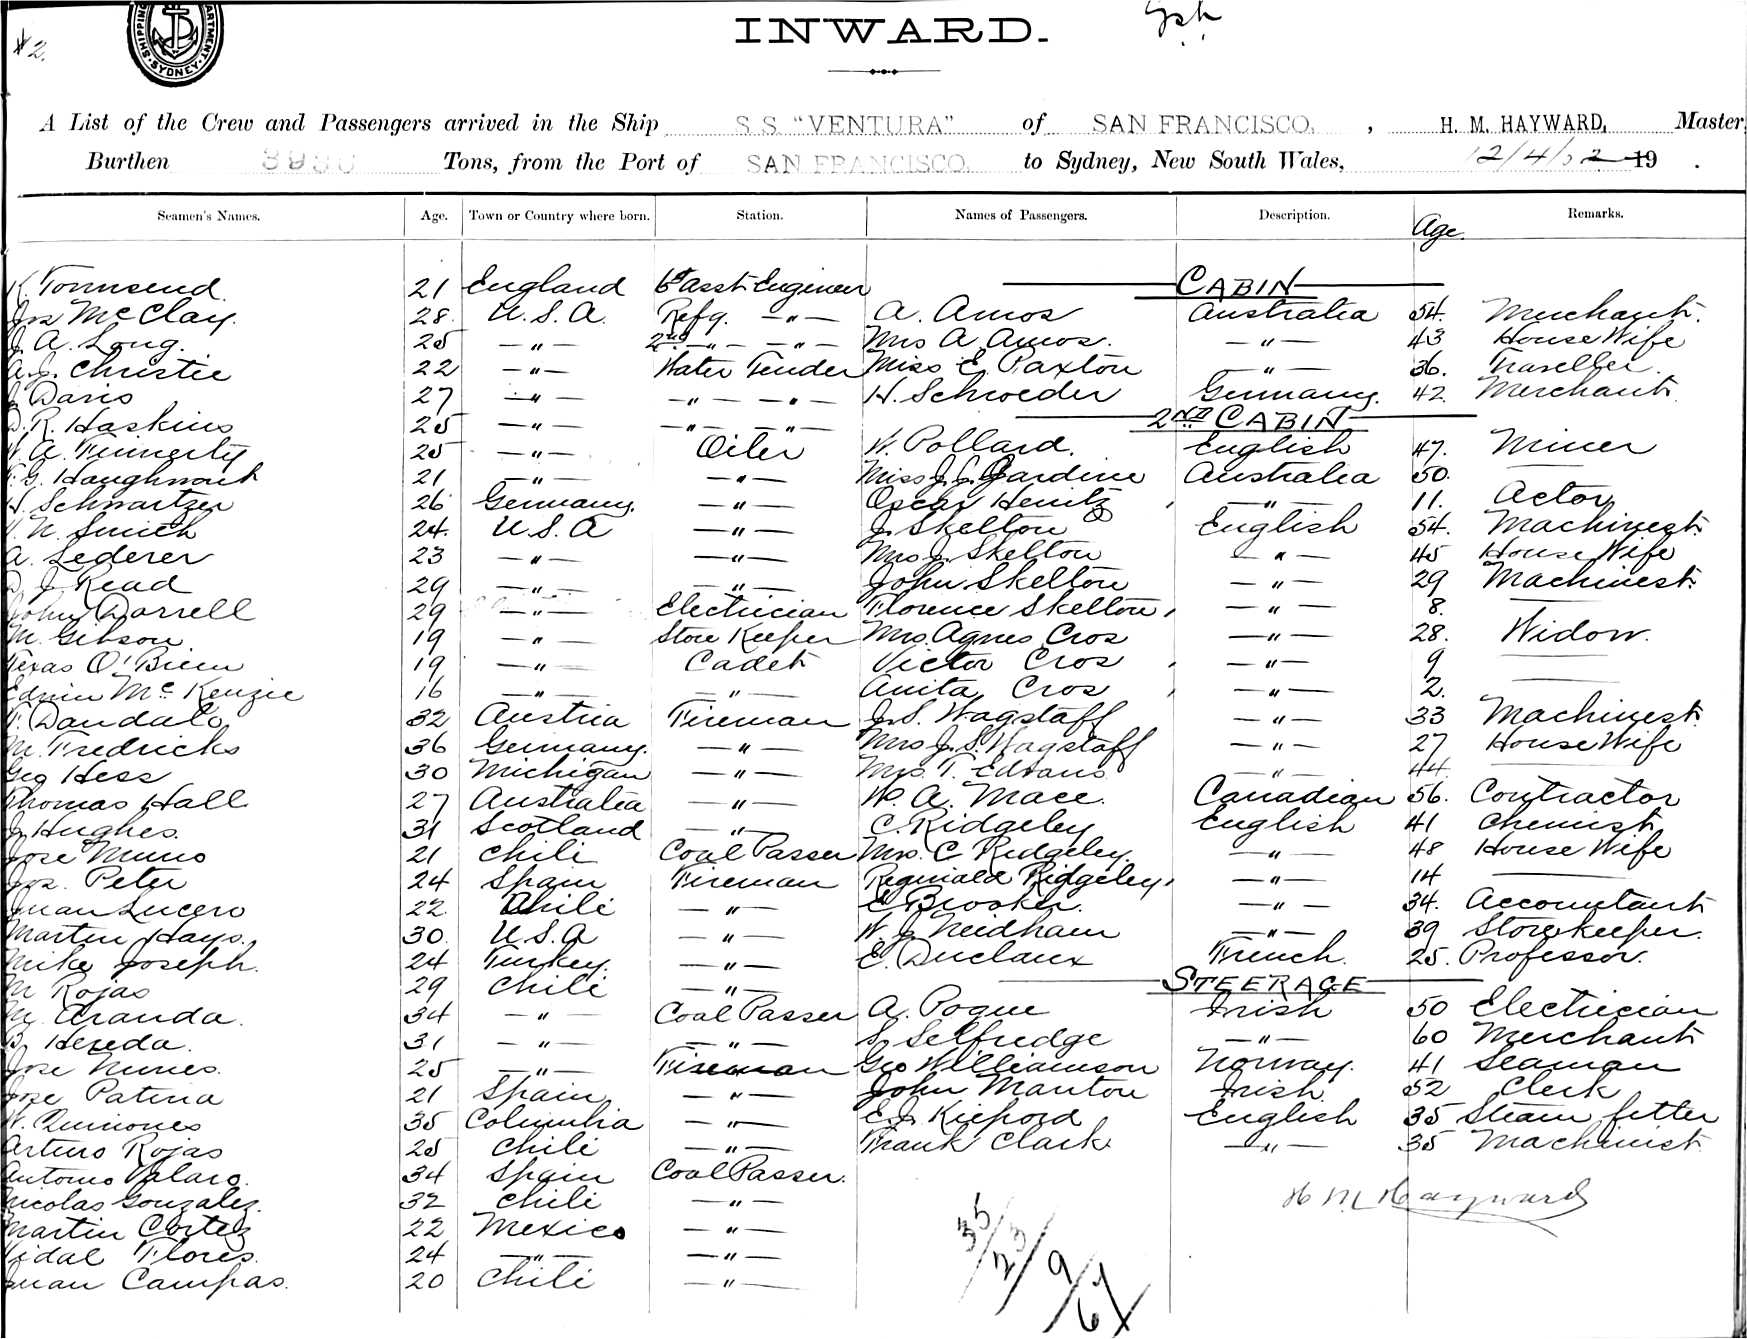 INWARD.
SHIPPING DEPARTMENT SYDNEY
A List of the Crew and Passengers arrived in the Ship S S "VENTURA" of SAN FRANCISCO, , H. M. HAYWARD, Master,
Burthen Tons, from the Port of SAN FRANCISCO. to Sydney, New South Wales, 12/4/ 19 .
Seamen's Names. Age. Town or Country where born. Station. Names of Passengers. Description. Age. Remarks.
Townsend. 21 England asst Engineer CABIN
Jos McClay. 28 U.S.A. Refg. — " — A. Amos Australia 54. Merchant.
J. A. Long. 25 — " — 2nd — " — — " — Mrs A Amos. — " — 43 House Wife
A. J. Christie 22 — " — Water Tender Miss E. Paxton — " — 36. Traveller.
J Davis 27 — " — — " — — " — H. Schroeder Germany. 42 Merchant.
R. Haskins 25 — " — — " — — " — 2ND CABIN
A. Finnerty 25 — " — Oiler W. Pollard. English 47. Miner
G. Haughwout 21 — " — — " — Miss J. Jardine Australia 50. —
H. Schwartzer 26 Germany. — " — Oscar Heintz — " — 11. Actor
N. Smith 24. U.S.A — " — J. Skelton English 54. Machinest.
A. Lederer 23 — " — — " — Mrs J. Skelton — " — 45 House Wife
J. Read 29 — " — — " — John Skelton — " — 29 Machinest.
John Darrell 29 — " — Electrician Florence Skelton, — " — 8. —
M. Gibson 19 — " — Store Keeper Mrs. Agnes Cros — " — 28. Widow.
Texas O'Brien 19 — " — Cadet Victor Cros — " — 9 —
Edwin McKenzie 16 — " — — " — Anita Cros — " — 2. —
Dandalo 32 Austria Fireman J. S. Wagstaff — " — 33 Machinest.
M. Fredricks 36 Germany. — " — Mrs J. S. Wagstaff — " — 27 House Wife
Geo Hess 30 Michigan — " — Mrs. T. — " — 44. —
Thomas Hall 27 Australia — " — W. A. Mace. Canadian 56. Contractor
J. Hughes. 31 Scotland — " — C. Ridgeley English 41 Chemist.
Jose Muno 21 Chili Coal Passer Mrs. C Ridgeley. — " — 48 House Wife
Jos. Peter 24 Spain Fireman Reginald Ridgeley, — " — 14 —
Juan Lucero 22 Chili — " — E Brooker. — " — 34. Accountant
Martin Hays. 30. U.S.A — " — W. J. Neidham — " — 39 Storekeeper.
Mike Joseph. 24 Turkey. — " — E. Duclaux French. 25. Professor.
M Rojas 29 Chili — " — STEERAGE
M. Aranda. 34 — " — Coal Passer A. Pogue Irish 50 Electrician
B. Hereda. 31 — " — — " — S. Selfredge — " — 60 Merchant
Jose Nunes. 25 — " — Fireman Geo Williamson Norway. 41 Seaman
Jose Patina 21 Spain — " — John Manton Irish. 52 Clerk
W. Quinones 35 Columbia — " — E. J. English 35 Steam fitter
Arturo Rojas 25 Chili — " — Frank Clark — " — 35 Machinist
Antonio 34 Spain Coal Passer.
Nicolas Gonzalez. 32 Chili — " —
Martin Cortez 22 Mexico — " —
Vidal Flores. 24 — " — — " —
Juan Campas. 20 Chili — " —
H M Hayward
35/23/9/67